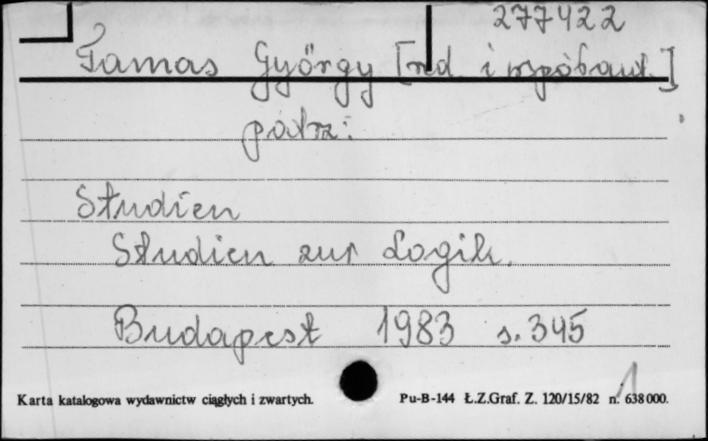 277422
Tamas György [red. i współaut.]
patrz:
Studien
Studien zur Logik.
Budapest 1983 s. 345
1
Karta katalogowa wydawnictw ciągłych i zwartych. Pu-B-144 Ł.Z.Graf. Z. 120/15/82 n. 638000.